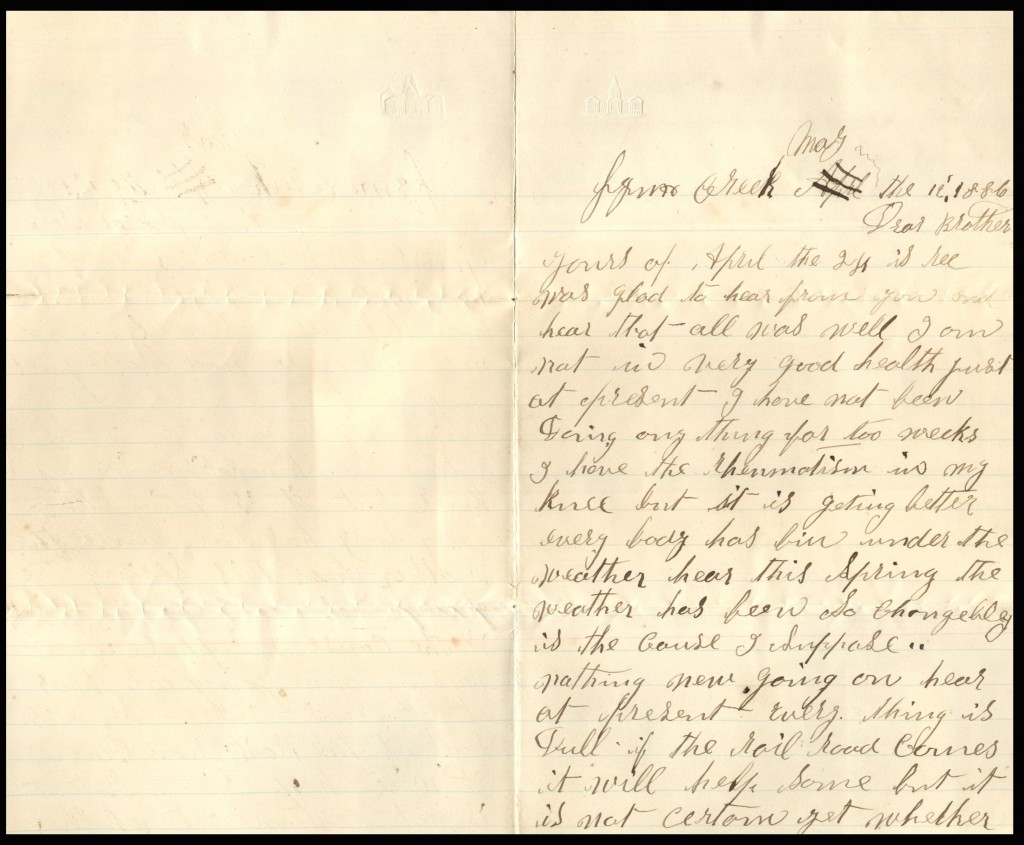 May
Creek the 11, 1886
Dear Brother
yours of April the 24 is rec
was glad to hear from you and
hear that all was well I am
not in very good health just
at present I have not been
Doing any thing for too weeks
I have the rheumatism in my
knee but it is geting better
every body has bin under the
weather hear this Spring the
weather has been So Changebley
is the Cause I suppose ..
nothing new going on hear
at present every thing is
Dull if the rail road Comes
it will help Some but it
is not certain yet whether